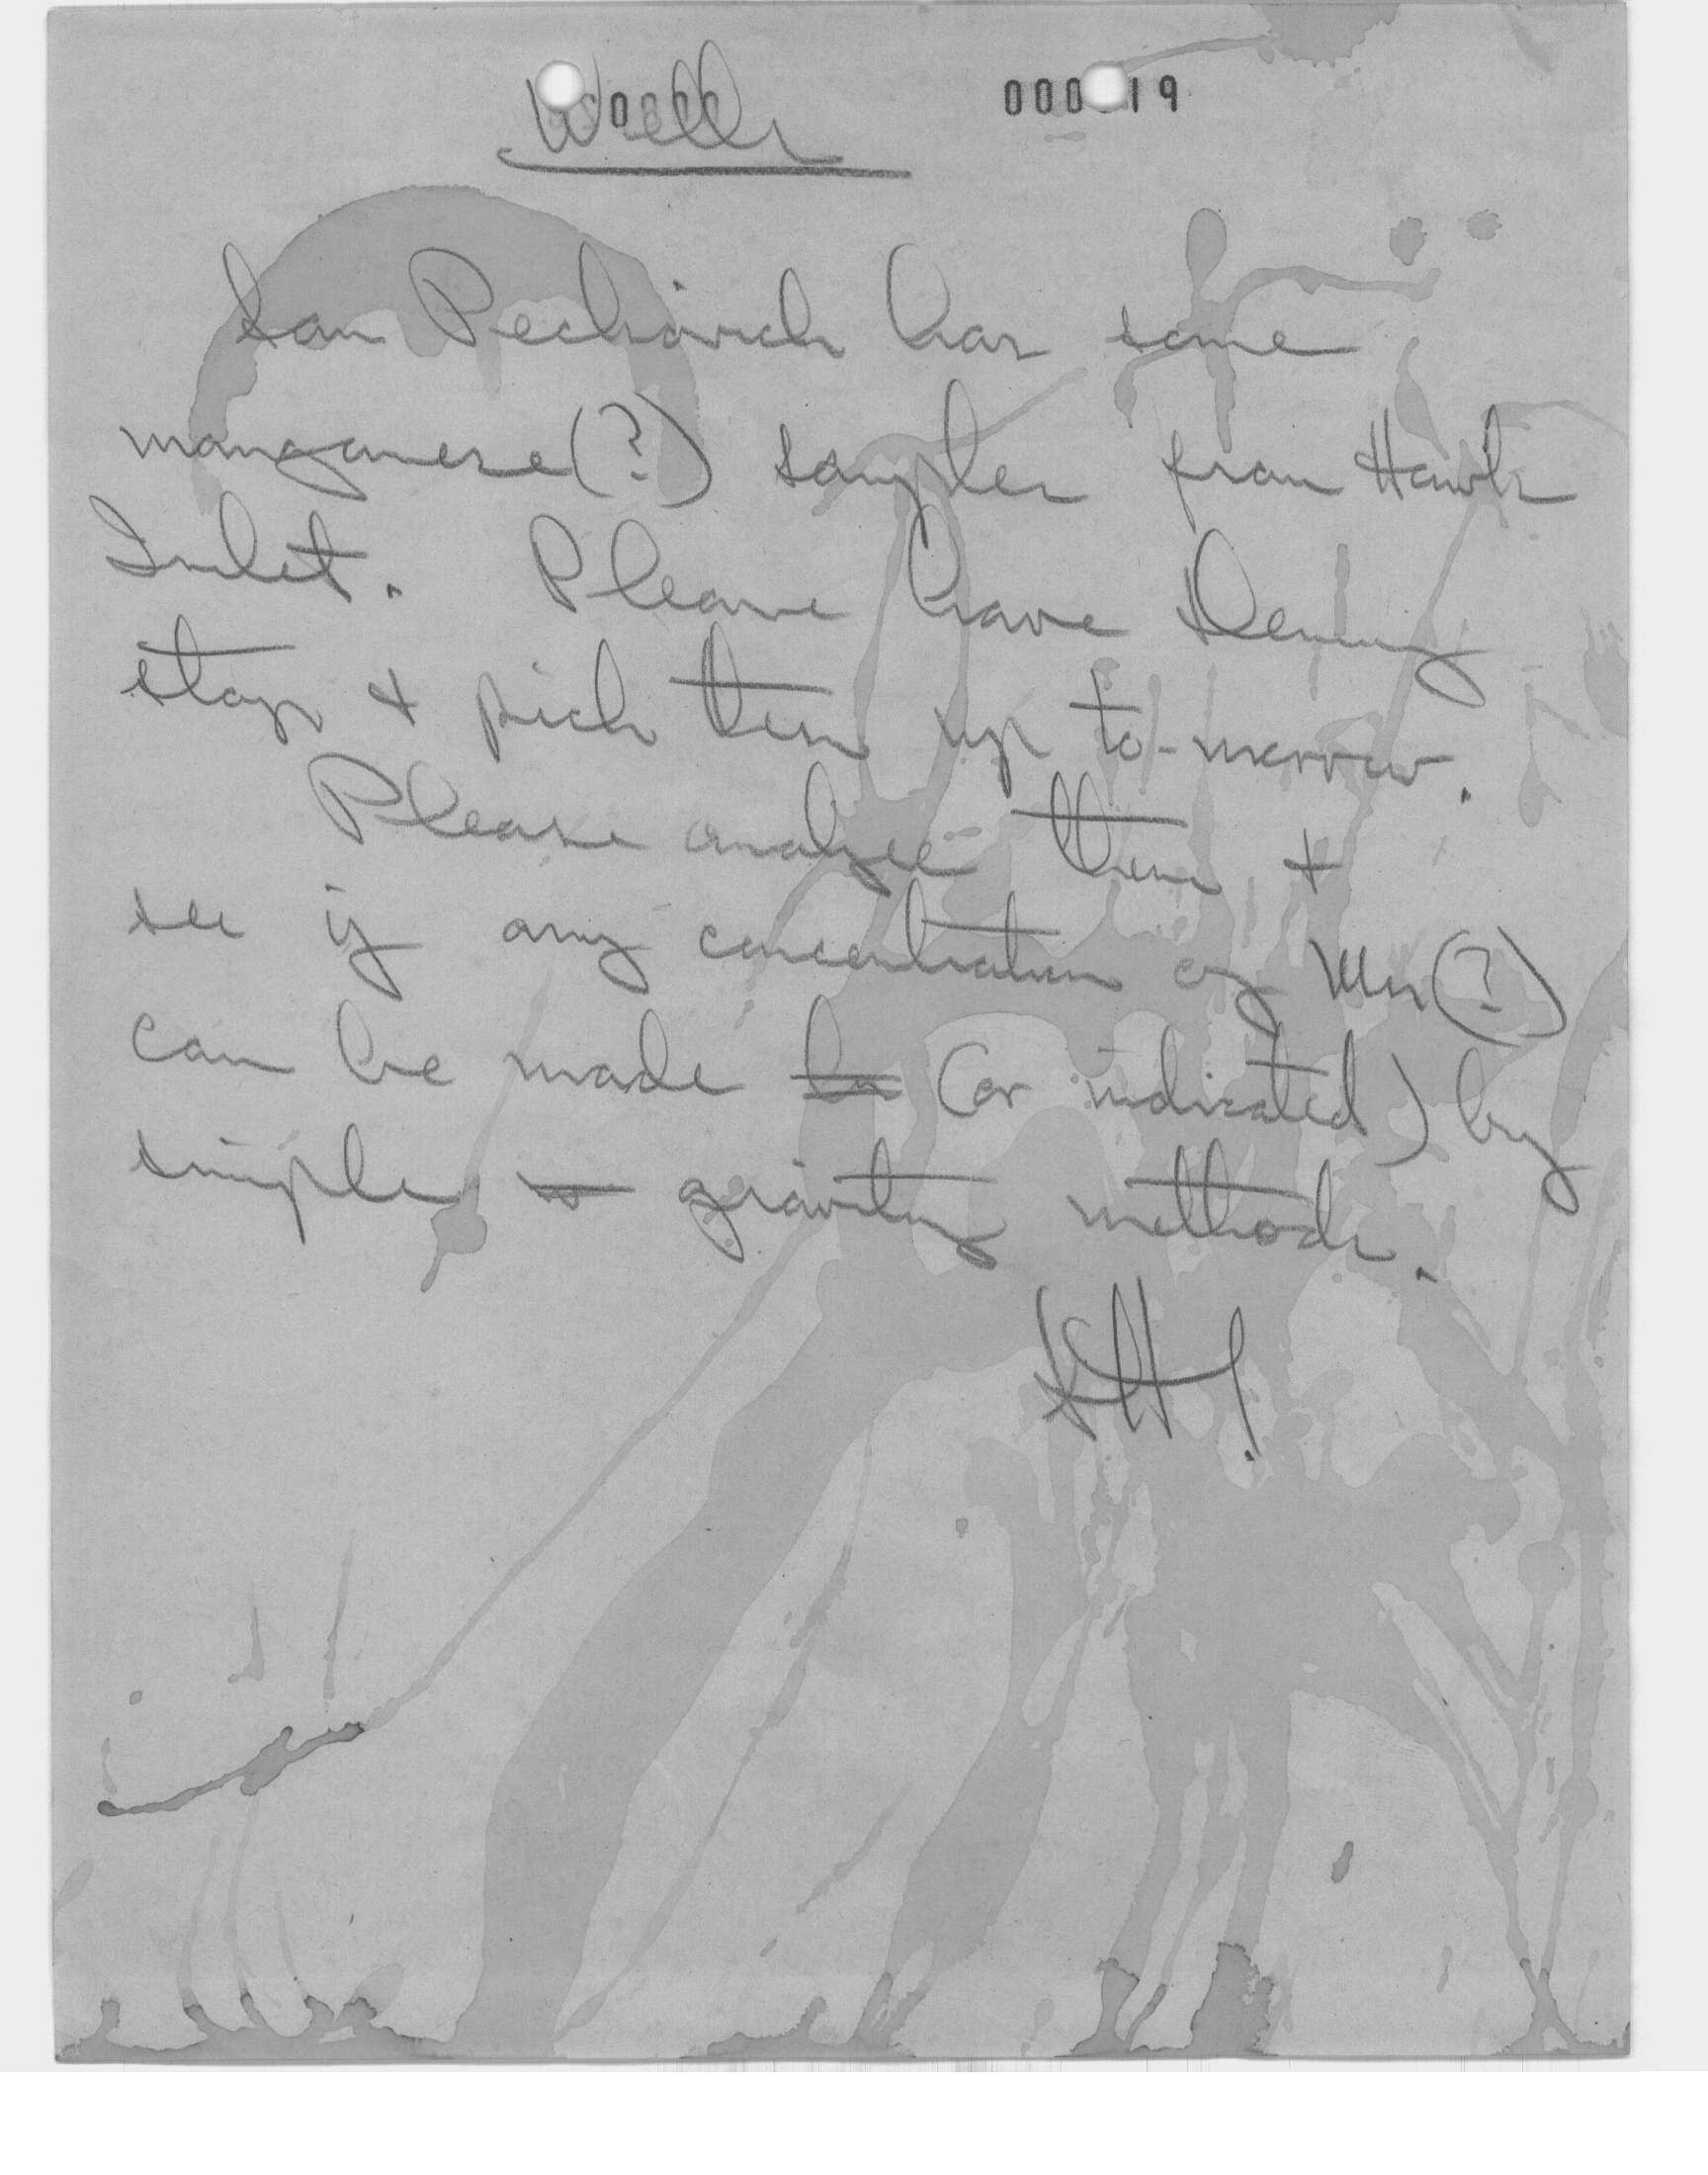 Wells
000 19
Sam Pechovich has some
manganese(?) samples from Hawk
Inlet. Please have Denny
stop & pick them up to-morrow.
Please analyze them &
see if any concentration of Mn(?)
can be made (or indicated) by
simple gravity methods.